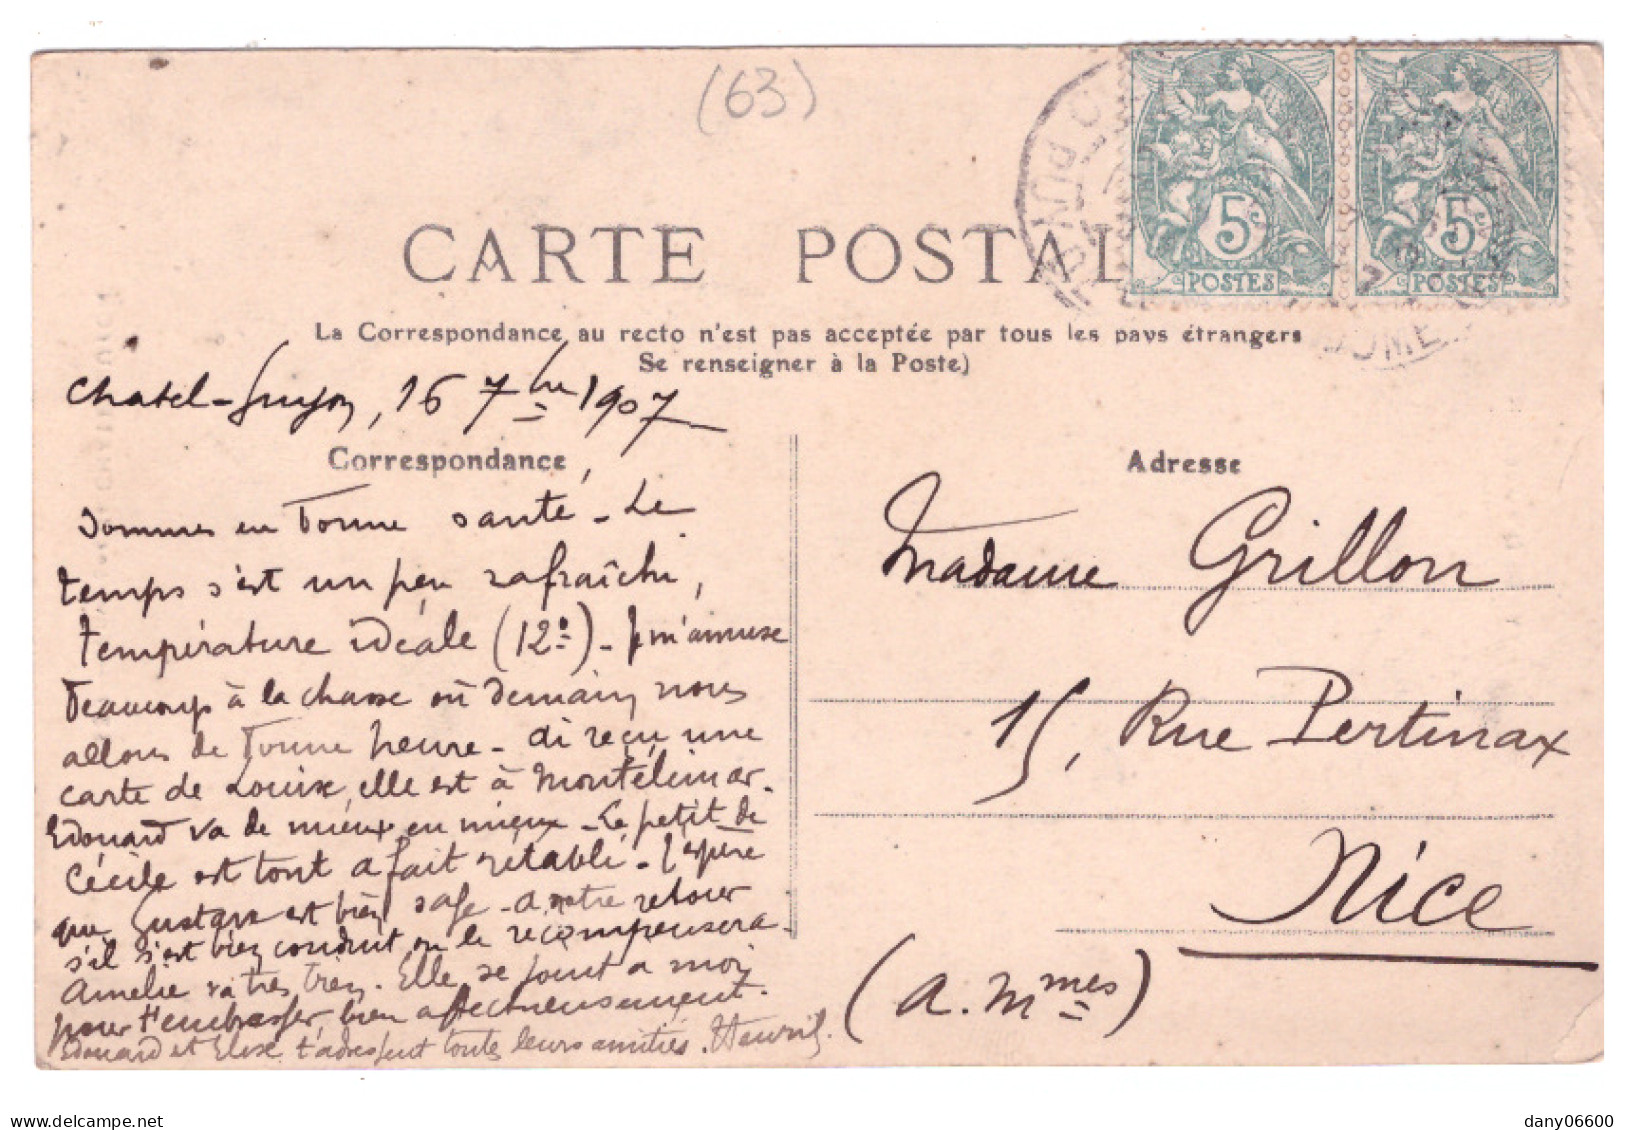 (63)
CARTE POSTAL
5c
POSTES
5c
POSTES
La Correspondance au recto n'est pas acceptée par tous les pays étrangers
Se renseigner à la Poste)
Chatel-Guyon, 16 7bre 1907
Correspondance
Adresse
Sommes en bonne santé - Le
temps s'est un peu rafraîchi,
température idéale (12°) - Je m'amuse
beaucoup à la chasse où demain nous
allons de bonne heure - ai reçu une
carte de Louise, elle est à Montélimar.
Edouard va de mieux en mieux - Le petit de
Cécile est tout a fait rétabli - J'espère
que Gustave est bien sage - a notre retour
s'il s'est bien conduit, on le récompensera -
Amélie va très bien. Elle se joint a moi
pour t'embrasser bien affectueusement.
Edouard et Elise t'adressent toutes leurs amitiés. Henri
Madame Grillon
15, Rue Pertinax
Nice
(A. Mmes)
delcampe.net
dany06600